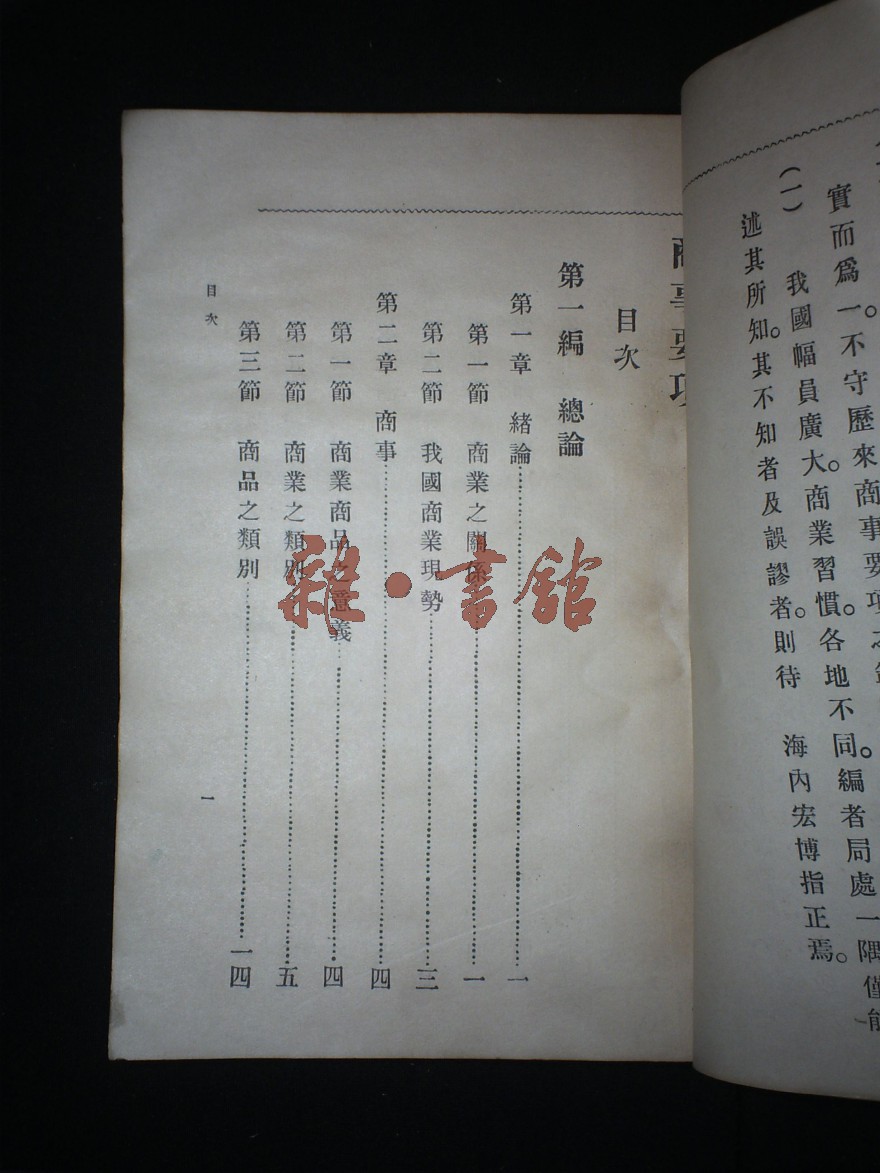 實而爲一。不守歷來商事要項之
(一) 我國幅員廣大。商業習慣。各地不同。編者局處一隅僅能
述其所知。其不知者及誤謬者。則待 海內宏博指正焉。
商事要項
目次
第一編 總論
第一章 緒論……一
第一節 商業之關係……一
第二節 我國商業現勢……三
第二章 商事……四
第一節 商業商品之意義……四
第二節 商業之類別……五
第三節 商品之類別……一四
目次 一
雜·書館